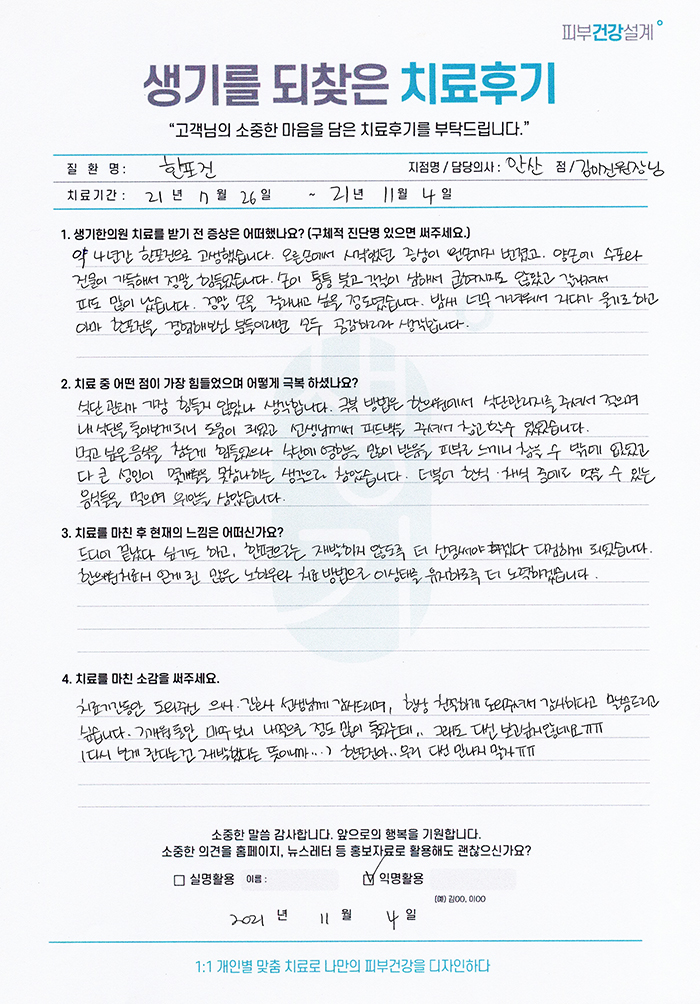 피부건강설계
생기를 되찾은 치료후기
“고객님의 소중한 마음을 담은 치료후기를 부탁드립니다.”
질 환 명 : 한포진 지점명 / 담당의사 : 안산 점 / 김이진원장님
치료기간 : 21 년 7 월 26 일 ~ 21 년 11 월 4 일
1. 생기한의원 치료를 받기 전 증상은 어떠했나요? (구체적 진단명 있으면 써주세요.)
약 4년간 한포진으로 고생했습니다. 오른손에서 시작했던 증상이 왼손까지 번졌고. 양손에 수포와
진물이 가득해서 정말 힘들었습니다. 손이 퉁퉁 붓고 각질이 심해서 굽혀지지도 않았고 갈라져서
피도 많이 났습니다. 정말 손을 잘라내고 싶을 정도였습니다. 밤새 너무 가려워서 자다가 울기도 하고
아마 한포진을 경험해보신 분들이라면 모두 공감하리라 생각합니다.
2. 치료 중 어떤 점이 가장 힘들었으며 어떻게 극복 하셨나요?
식단 관리가 가장 힘들지 않았나 생각합니다. 극복 방법은 한의원에서 식단관리지를 주셔서 적으며
내 식단을 돌아보게 되니 도움이 되었고 선생님께서 피드백을 주셔서 참고할 수 있었습니다.
먹고 싶은 음식을 참는게 힘들었으나 식단에 영향을 많이 받음을 피부로 느끼니 참을 수 밖에 없었고
다 큰 성인이 몇개월을 못참나하는 생각으로 참았습니다. 더불어 한식 · 채식 중에도 먹을 수 있는
음식들을 먹으며 위안을 삼았습니다.
3. 치료를 마친 후 현재의 느낌은 어떠신가요?
드디어 끝났다 싶기도 하고, 한편으로는 재발하지 않도록 더 신경써야 하겠다 다짐하게 되었습니다.
한의원치료시 알게 된 많은 노하우와 치료 방법으로 이상태를 유지하도록 더 노력하겠습니다.
4. 치료를 마친 소감을 써주세요.
치료기간동안 도와주신 의사·간호사 선생님께 감사드리며, 항상 친절하게 도와주셔서 감사하다고 말씀드리고
싶습니다. 3개월동안 매주 보니 나름으로 정도 많이 들었는데.. 그래도 다신 보고싶지않네요ㅠㅠ
(다시 보게 된다는건 재발했다는 뜻이니까...) 한포진아.. 우리 다신 만나지 말자ㅠㅠ
소중한 말씀 감사합니다. 앞으로의 행복을 기원합니다.
소중한 의견을 홈페이지, 뉴스레터 등 홍보자료로 활용해도 괜찮으신가요?
실명활용 이름 : 익명활용
(예) 김OO, 이OO
2021 년 11 월 4 일
1:1 개인별 맞춤 치료로 나만의 피부건강을 디자인하다